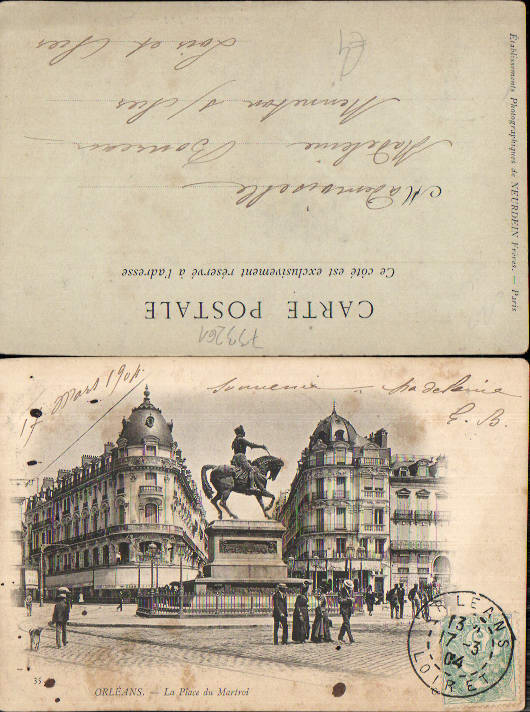 CARTE POSTALE
Ce côté est exclusivement réservé à l'adresse
Mademoiselle
Madeleine
Mennetou s/ cher
Loir et Cher
Établissements Photographiques de NEURDEIN Frères. — Paris
733261
17 Mars 1904
Souvenir
Madeleine
G. B.
ORLÉANS
13
17 -3
04
LOIRET
35
ORLÉANS. — La Place du Martroi